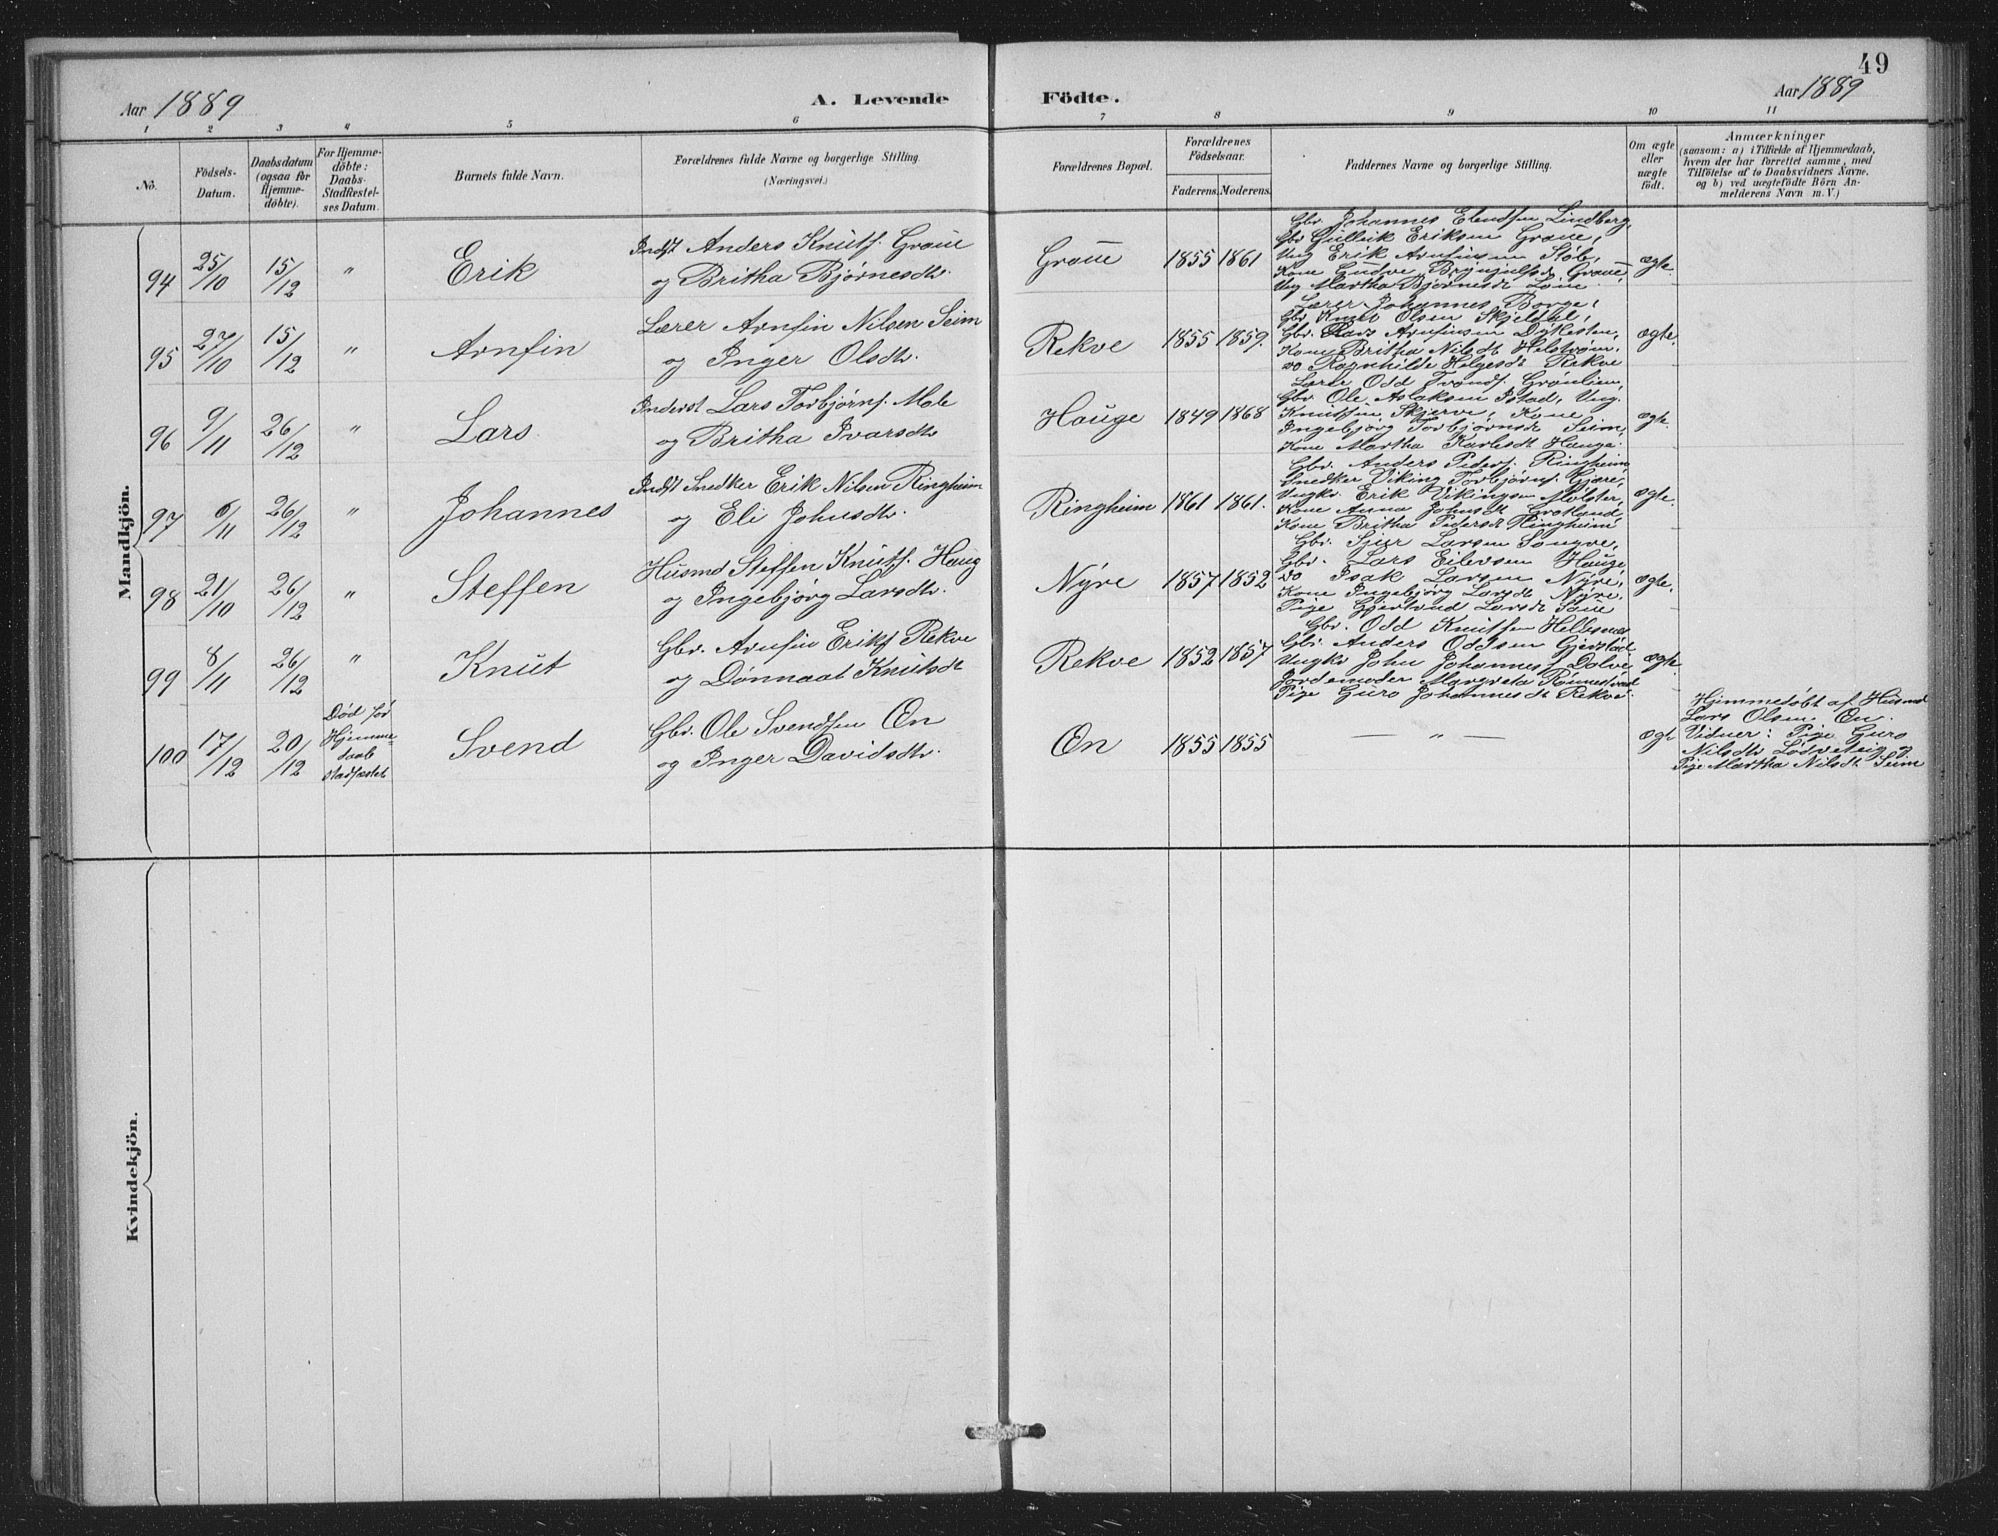 49
Aar 1889
A. Levende Födte.
Aar 1889
1 2 3 4 5 6 7 8 9 10 11
No.
Födsels-Datum.
Daabsdatum (ogsaa for Hjemme-döbte).
For Hjemme-döbte: Daabs-Stadfæstel-ses Datum.
Barnets fulde Navn.
Forældrenes fulde Navne og borgerlige Stilling.
(Næringsvei.)
Forældrenes Bopæl.
Forældrenes Födselsaar.
Faderens. Moderens.
Faddernes Navne og borgerlige Stilling.
Om ægte eller uægte födt.
Anmærkninger
(saasom: a) i Tilfælde af Hjemmedaab,
hvem der har forrettet samme, med
Tilföielse af to Daabsvidners Navne.
og b) ved uægtefödte Börn An-
melderens Navn m. V.)
Mandkjön.
94 25/10 15/12 " Erik
Indst Anders Knutf. Graue
og Britha Bjørnesdtr.
Graue 1855 1861
Gbr. Johannes Elendsen Lindberg,
Gbr Gullik Eriksen Graue,
Ung Erik Arnfinsen Støb,
Kone Gudve Brynjulfsdt Graue,
Ung Martha Bjørnesdt Lone.
ægte.
95 27/10 15/12 " Arnfin
Lærer Arnfin Nilsen Seim
og Inger Olsdtr.
Rekve 1855 1859.
Lærer Johannes Borge,
Gbr. Knut Olsen Skjeldal,
Gbr. Lars Arnfinsen Dykesten,
Kone Britha Nilsdt Helstrøm.
do Ragnhilde Helgesdt Rekve
ægte.
96 9/11 26/12 " Lars.
Inderst Lars Torbjørnf. Mole
og Britha Ivarsdtr
Hauge 1849 1868
Lærer Odd Trondf. Grønlien,
Gbr. Ole Aslaksen Istad, Ung.
Knutsen Skjerve, Kone
Ingebjørg Torbjørnsdt Seim,
Kone Martha Karlsdt Hauge.
ægte.
97 6/11 26/12 " Johannes
Indst Snedker Erik Nilsen Ringheim
og Eli Johnsdtr.
Ringheim 1861 1861.
Gbr. Anders Pedersf. Ringheim,
Snedker Viking Torbjørnf. Gjøre,
Ungkr. Erik Vikingsen Mølster,
Kone Anna Johnsdt Grotland
Kone Britha Pedersdt Ringheim
ægte.
98 21/10 26/12 " Steffen
Husmd Steffen Knutf. Haug
og Ingebjørg Larsdtr.
Nyre 1857 1852
Gbr. Sjur Larsen Songve,
Gbr. Lars Eilevsen Hauge,
do Isak Larsen Nyre,
Kone Ingebjørg Larsdt Nyre,
Pige Gjertrud Larsdt Saue
ægte.
99 8/11 26/12 " Knut
Gbr. Arnfin Eriksf Rekve
og Dønnaat Knutsdt
Rekve 1852 1857
Gbr. Odd Knutsen Hellesnæs
Gbr. Anders Oddsen Gjerstad,
Ungkr John Johannesf Dolve,
Jordemoder Margreta Rønnestrand
Pige Guro Johannesdt Rekve.
ægte.
100 17/12 20/12
Død før
Hjemme-
daab
stadfæstet
Svend
Gbr. Ole Svendsen En
og Inger Davidsdtr.
En 1855 1855 — " — ægte
Hjemmedøbt af Husmd
Lars Olsen En.
Vidner: Pige Guro
Nilsdtr Lødveteig og
Pige Martha Nilsdt Seim
Kvindekjön.